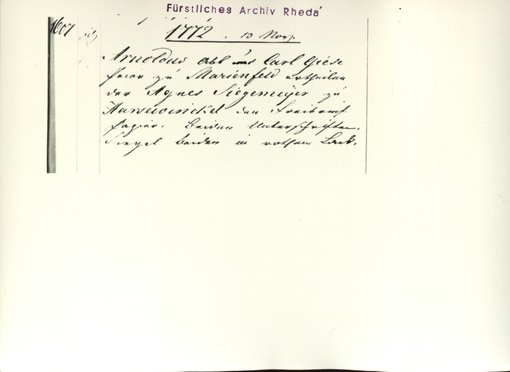 Fürstliches Archiv Rheda
1607
1772. 10 Nov.
Arnoldus Abt und Carl Giese
zu Marienfeld ertheilen
der Agnes Siegemeyer zu
Harsewinckel den Freibrief
Papier. Beider Unterschriften.
Siegel beider in rothem Lack.